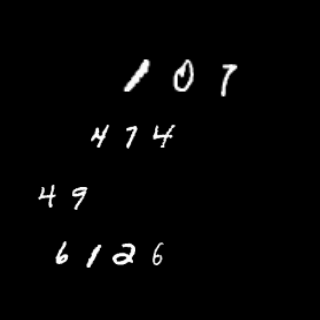 1 0 7
4 7 4
4 9
6 1 2 6